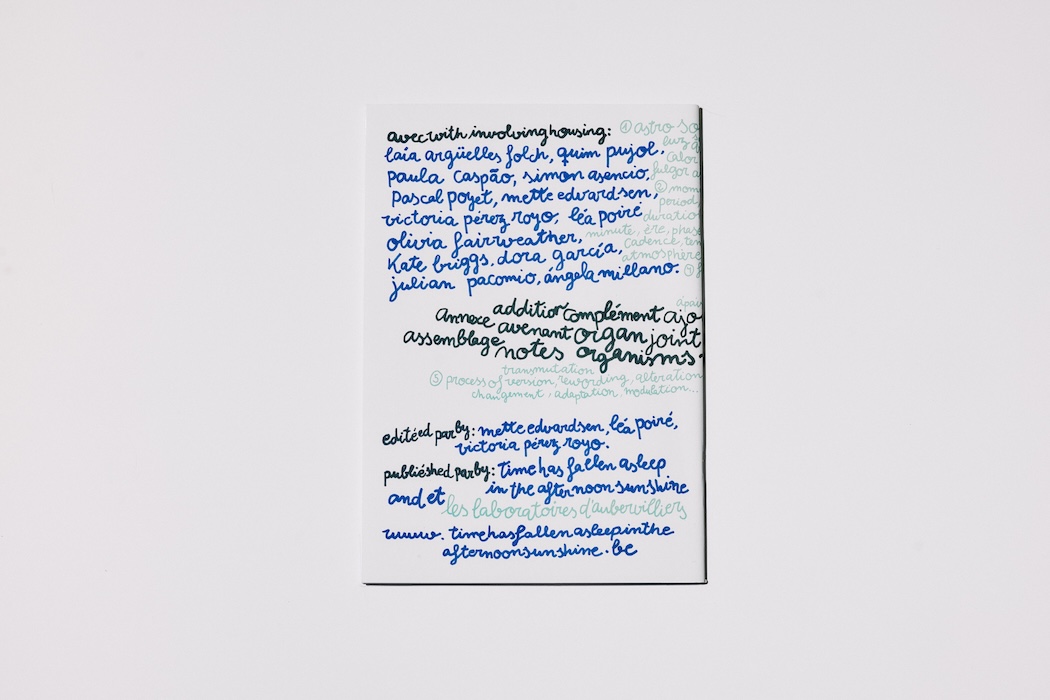 avec with involving housing:
① astro so
laía argüelles folch, quim pujol,
luz
paula caspão, simon asencio,
calor
fulgor a
pascal poyet, mette edvardsen,
② mom
period
victoria pérez royo, léa poiré
duratio
olivia fairweather,
minute, ère, phase
kate briggs, dora garcía,
cadence, ten
atmosphère
julian pacomio, ángela millano.
annexe addition complément ajo
assemblage avenant organ joint
notes organisms
transmutation
⑤ process of version, rewording, alteration
changement, adaptation, modulation...
editéed parby: mette edvardsen, léa poiré,
victoria pérez royo.
publiéshed parby: time has fallen asleep
in the afternoon sunshine
and et les laboratoires d'aubervilliers
www. timehasfallenasleepinthe
afternoonsunshine.be